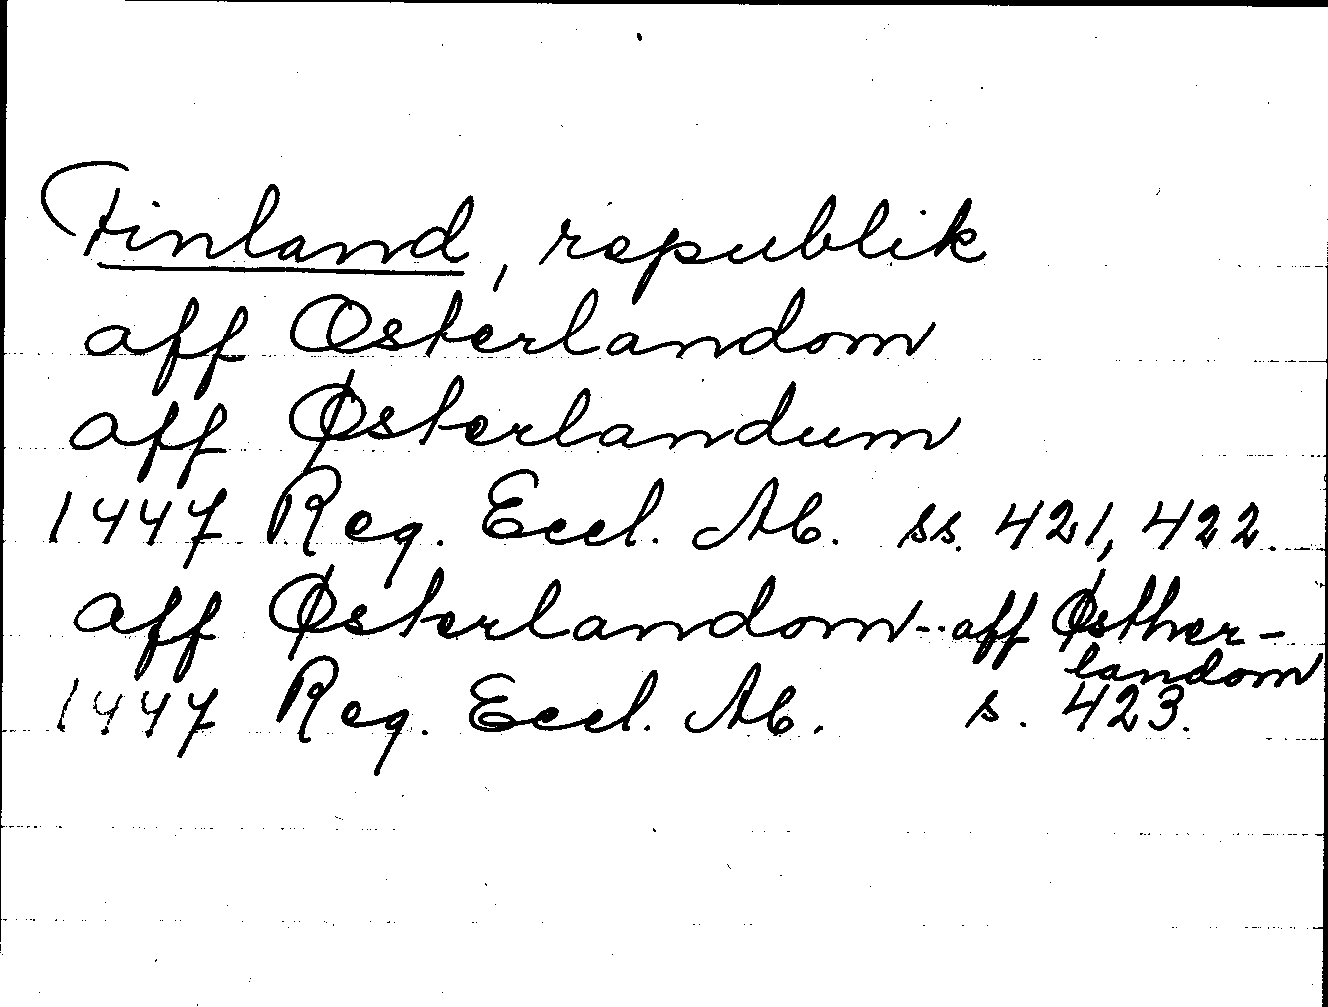 Finland, republik
aff Osterlandom
aff Østerlandum
1447 Reg. Eccl. Ab. ss. 421, 422.
aff Østerlandom - aff Østher-
landom
1447 Reg. Eccl. Ab. s. 423.